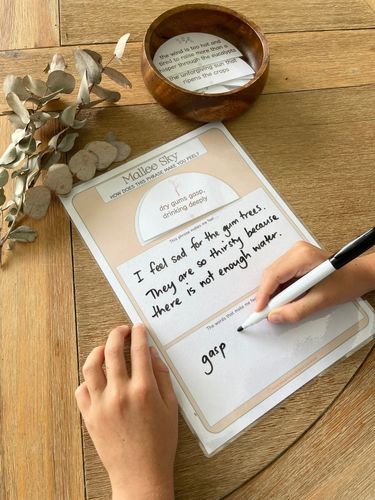 the wind is too hot and
tired to raise more than a
whisper through the eucalypts
the unforgiving sun that
ripens the crops
Mallee Sky
HOW DOES THIS PHRASE MAKE YOU FEEL?
dry gums gasp,
drinking deeply
This phrase makes me feel ...
I feel sad for the gum trees.
They are so thirsty because
there is not enough water.
The words that make me feel
gasp